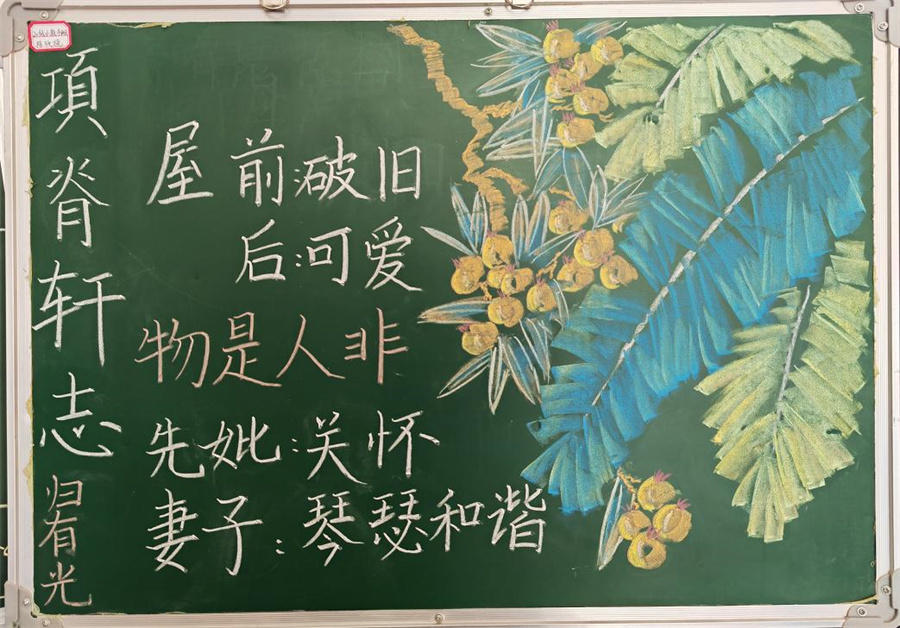 項脊轩志
归有光
屋 前:破旧
后:可爱
物是人非
先妣:关怀
妻子:琴瑟和谐